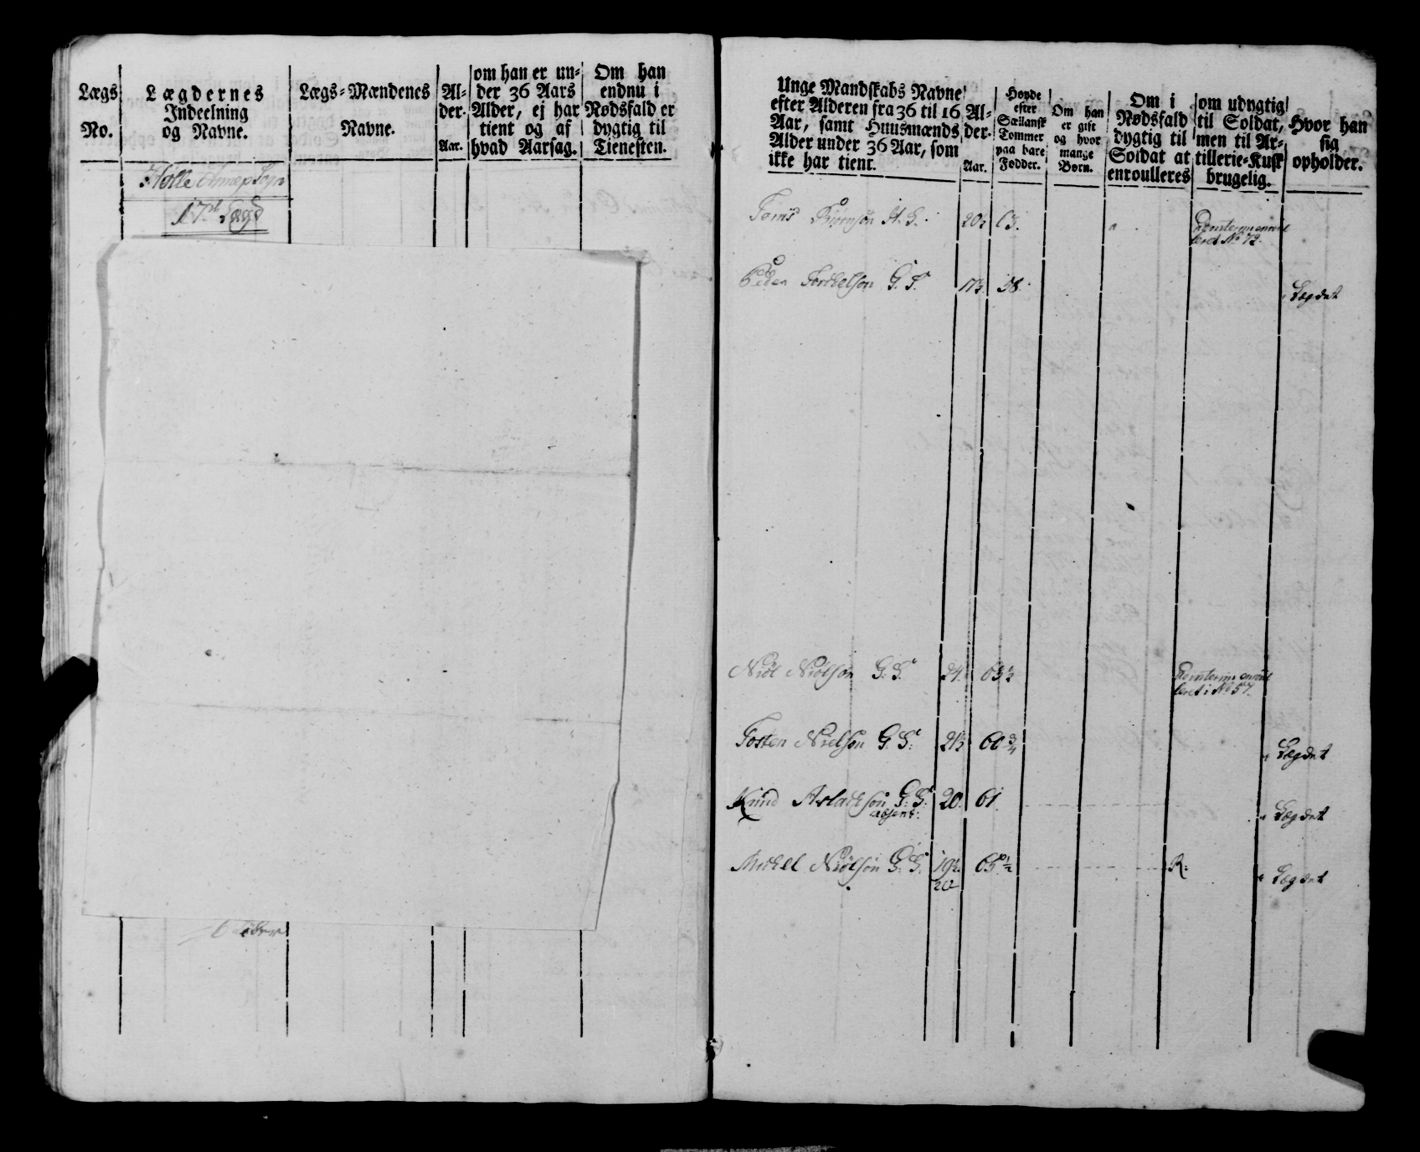 Lægs
No.
Lægdernes
Indeelning
og Navne.
Lægs-Mændenes
Navne.
Al-
der.
Aar.
om han er un-
der 36 Aars
Alder, ej har
tient og af
hvad Aarsag.
Om han
endnu i
Nødsfald er
dygtig til
Tienesten.
Holle Annex Sogn
17de Lægd
Unge Mandskabs Navne
efter Alderen fra 36 til 16
Aar, samt Huusmænds
Alder under 36 Aar, som
ikke har tient.
Al-
der.
Aar.
Høyde
efter
Sællansk
Tommer
paa bare
Fødder.
Om han
er gift
og hvor
mange
Børn.
Om i
Nødsfald
dygtig til
Soldat at
enroulleres
om udygtig
til Soldat,
men til Ar-
tillerie-Kusk
brugelig.
Hvor han
sig
opholder.
20 63.
leret No 72.
Peder Torkelsøn G. S. 17½ 58. Lægdet
Niel Nielsøn G. S. 24. 63½
leret i No 57.
Tosten Nielsøn G. S. 21½ 60¾ Lægdet
Knud Aslachsøn G. S. 20. 61. Lægdet
absent.
Michel Nielsøn G. S. 19½ 65½ R. Lægdet
20